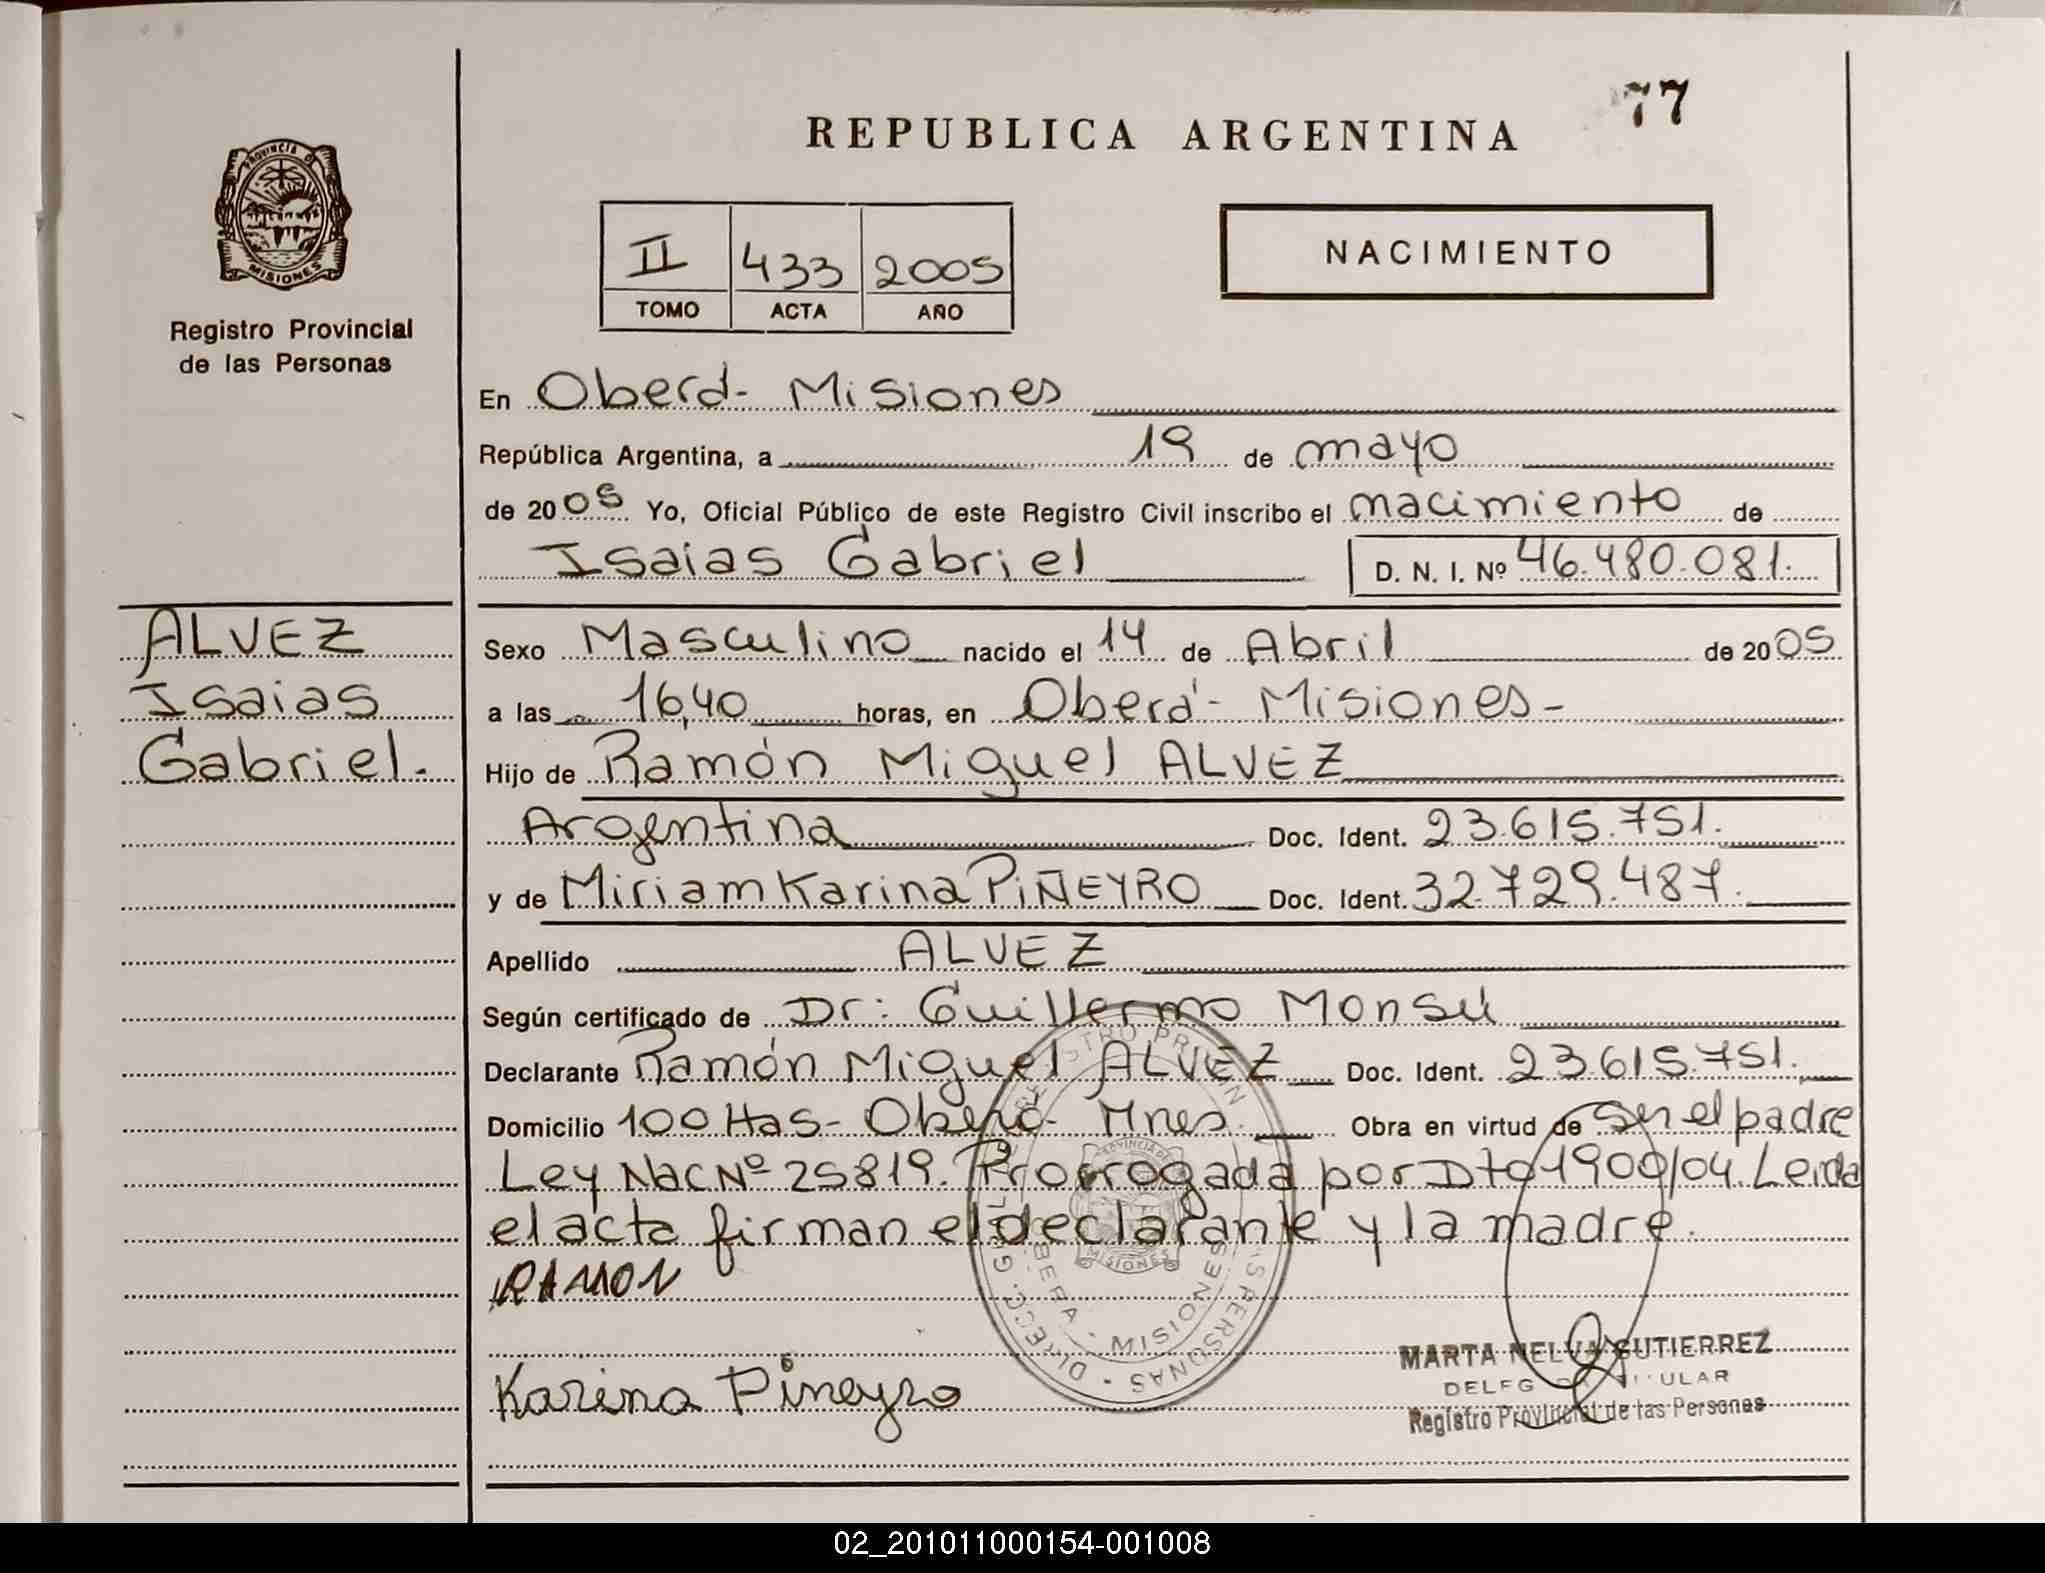 77
REPUBLICA ARGENTINA
PROVINCIA DE
MISIONES
Registro Provincial
de las Personas
II 433 2005
TOMO ACTA AÑO
NACIMIENTO
En Oberá- Misiones
República Argentina, a 19 de mayo
de 2005 Yo, Oficial Público de este Registro Civil inscribo el nacimiento de
Isaias Gabriel D. N. I. Nº 46.480.081.
ALVEZ
Isaias
Gabriel.
Sexo Masculino nacido el 14 de Abril de 2005
a las 16,40 horas, en Oberá- Misiones-
Hijo de Ramón Miguel ALVEZ
Argentina Doc. Ident. 23.615.751.
y de Miriam Karina PIÑEYRO Doc. Ident. 32.729.487.
Apellido ALVEZ
Según certificado de Dr: Guillermo Monsú
Declarante Ramón Miguel ALVEZ Doc. Ident. 23.615.751.
Domicilio 100 Has- Oberá- Mnes. Obra en virtud de ser el padre
Ley Nac Nº 25819. Prorrogada por Dto 1900/04. Leida
el acta firman el declarante y la madre.
RAMON
Karina Pineyro
MISIONES
OBERA - MISIONES
MARTA NELVA GUTIERREZ
Registro Provincial de las Personas
02_201011000154-001008